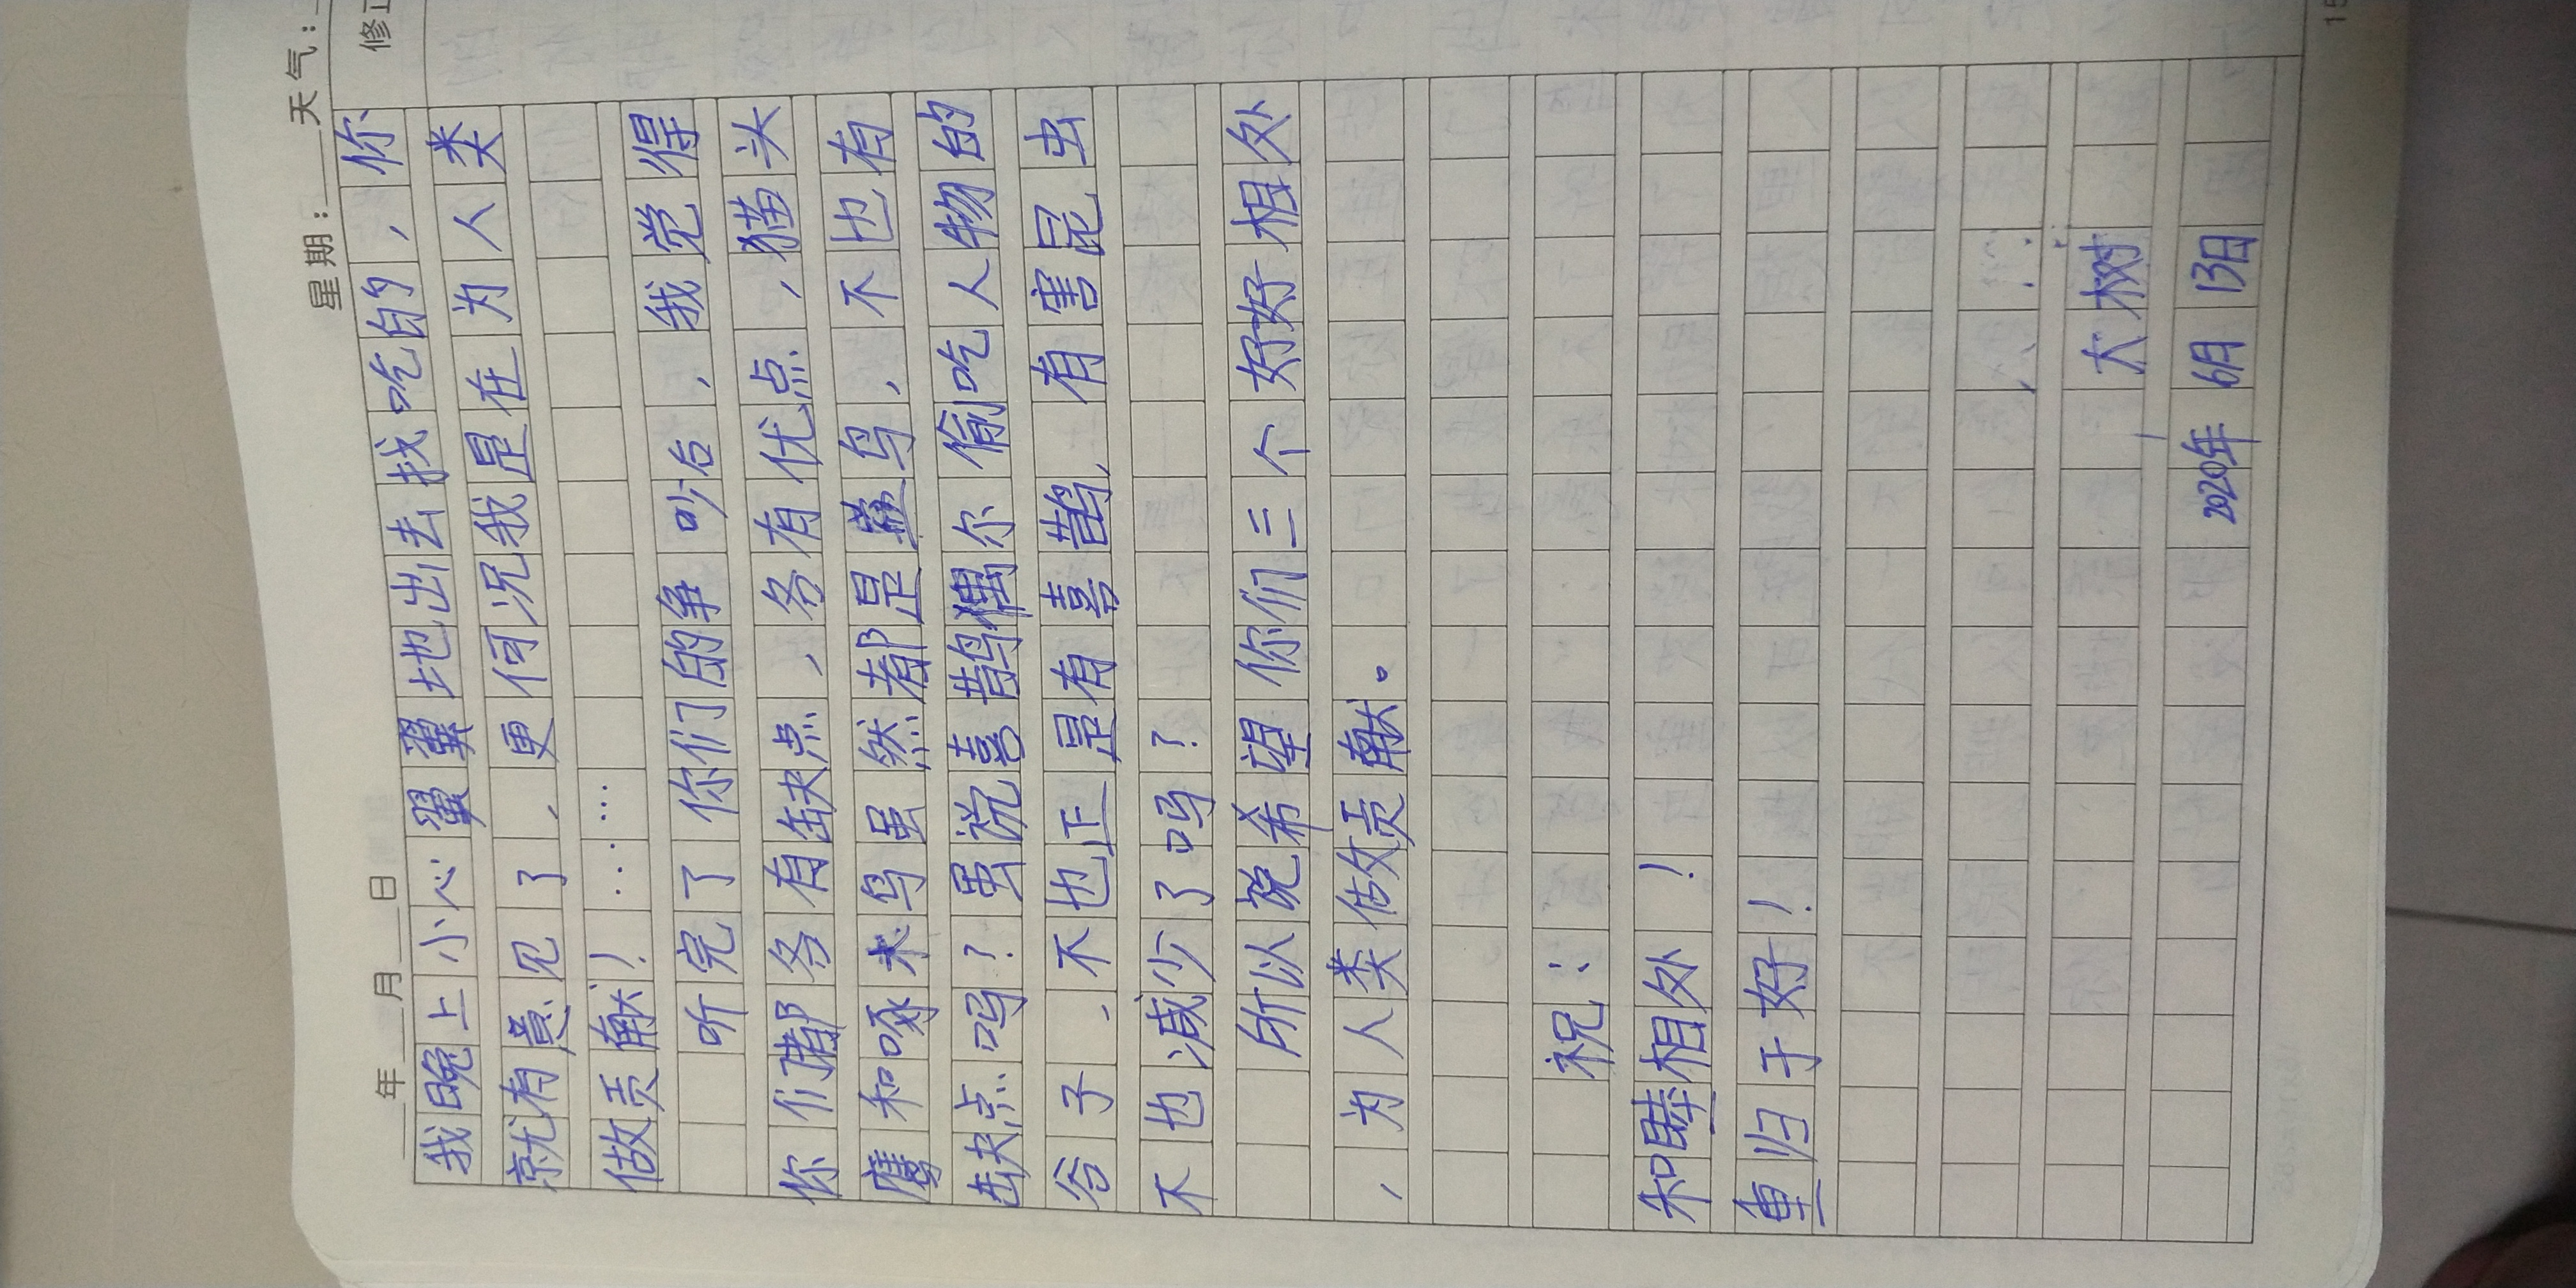 年 月 日 星期： 天气：
修正
我晚上小心翼翼地出去找吃的，你
就有意见了，更何况我是在为人类
做贡献！……
听完了你们的争吵后，我觉得
你们都各有缺点，各有优点，猫头
鹰和啄木鸟虽然都是益鸟，不也有
缺点吗？虽说喜鹊偶尔偷吃人物的
谷子，不也正是有喜鹊，有害昆虫
不也减少了吗？
所以说希望你们三个好好相处
，为人类做贡献。
祝：
和睦相处！
重归于好！
大树
2020年6月13日
15